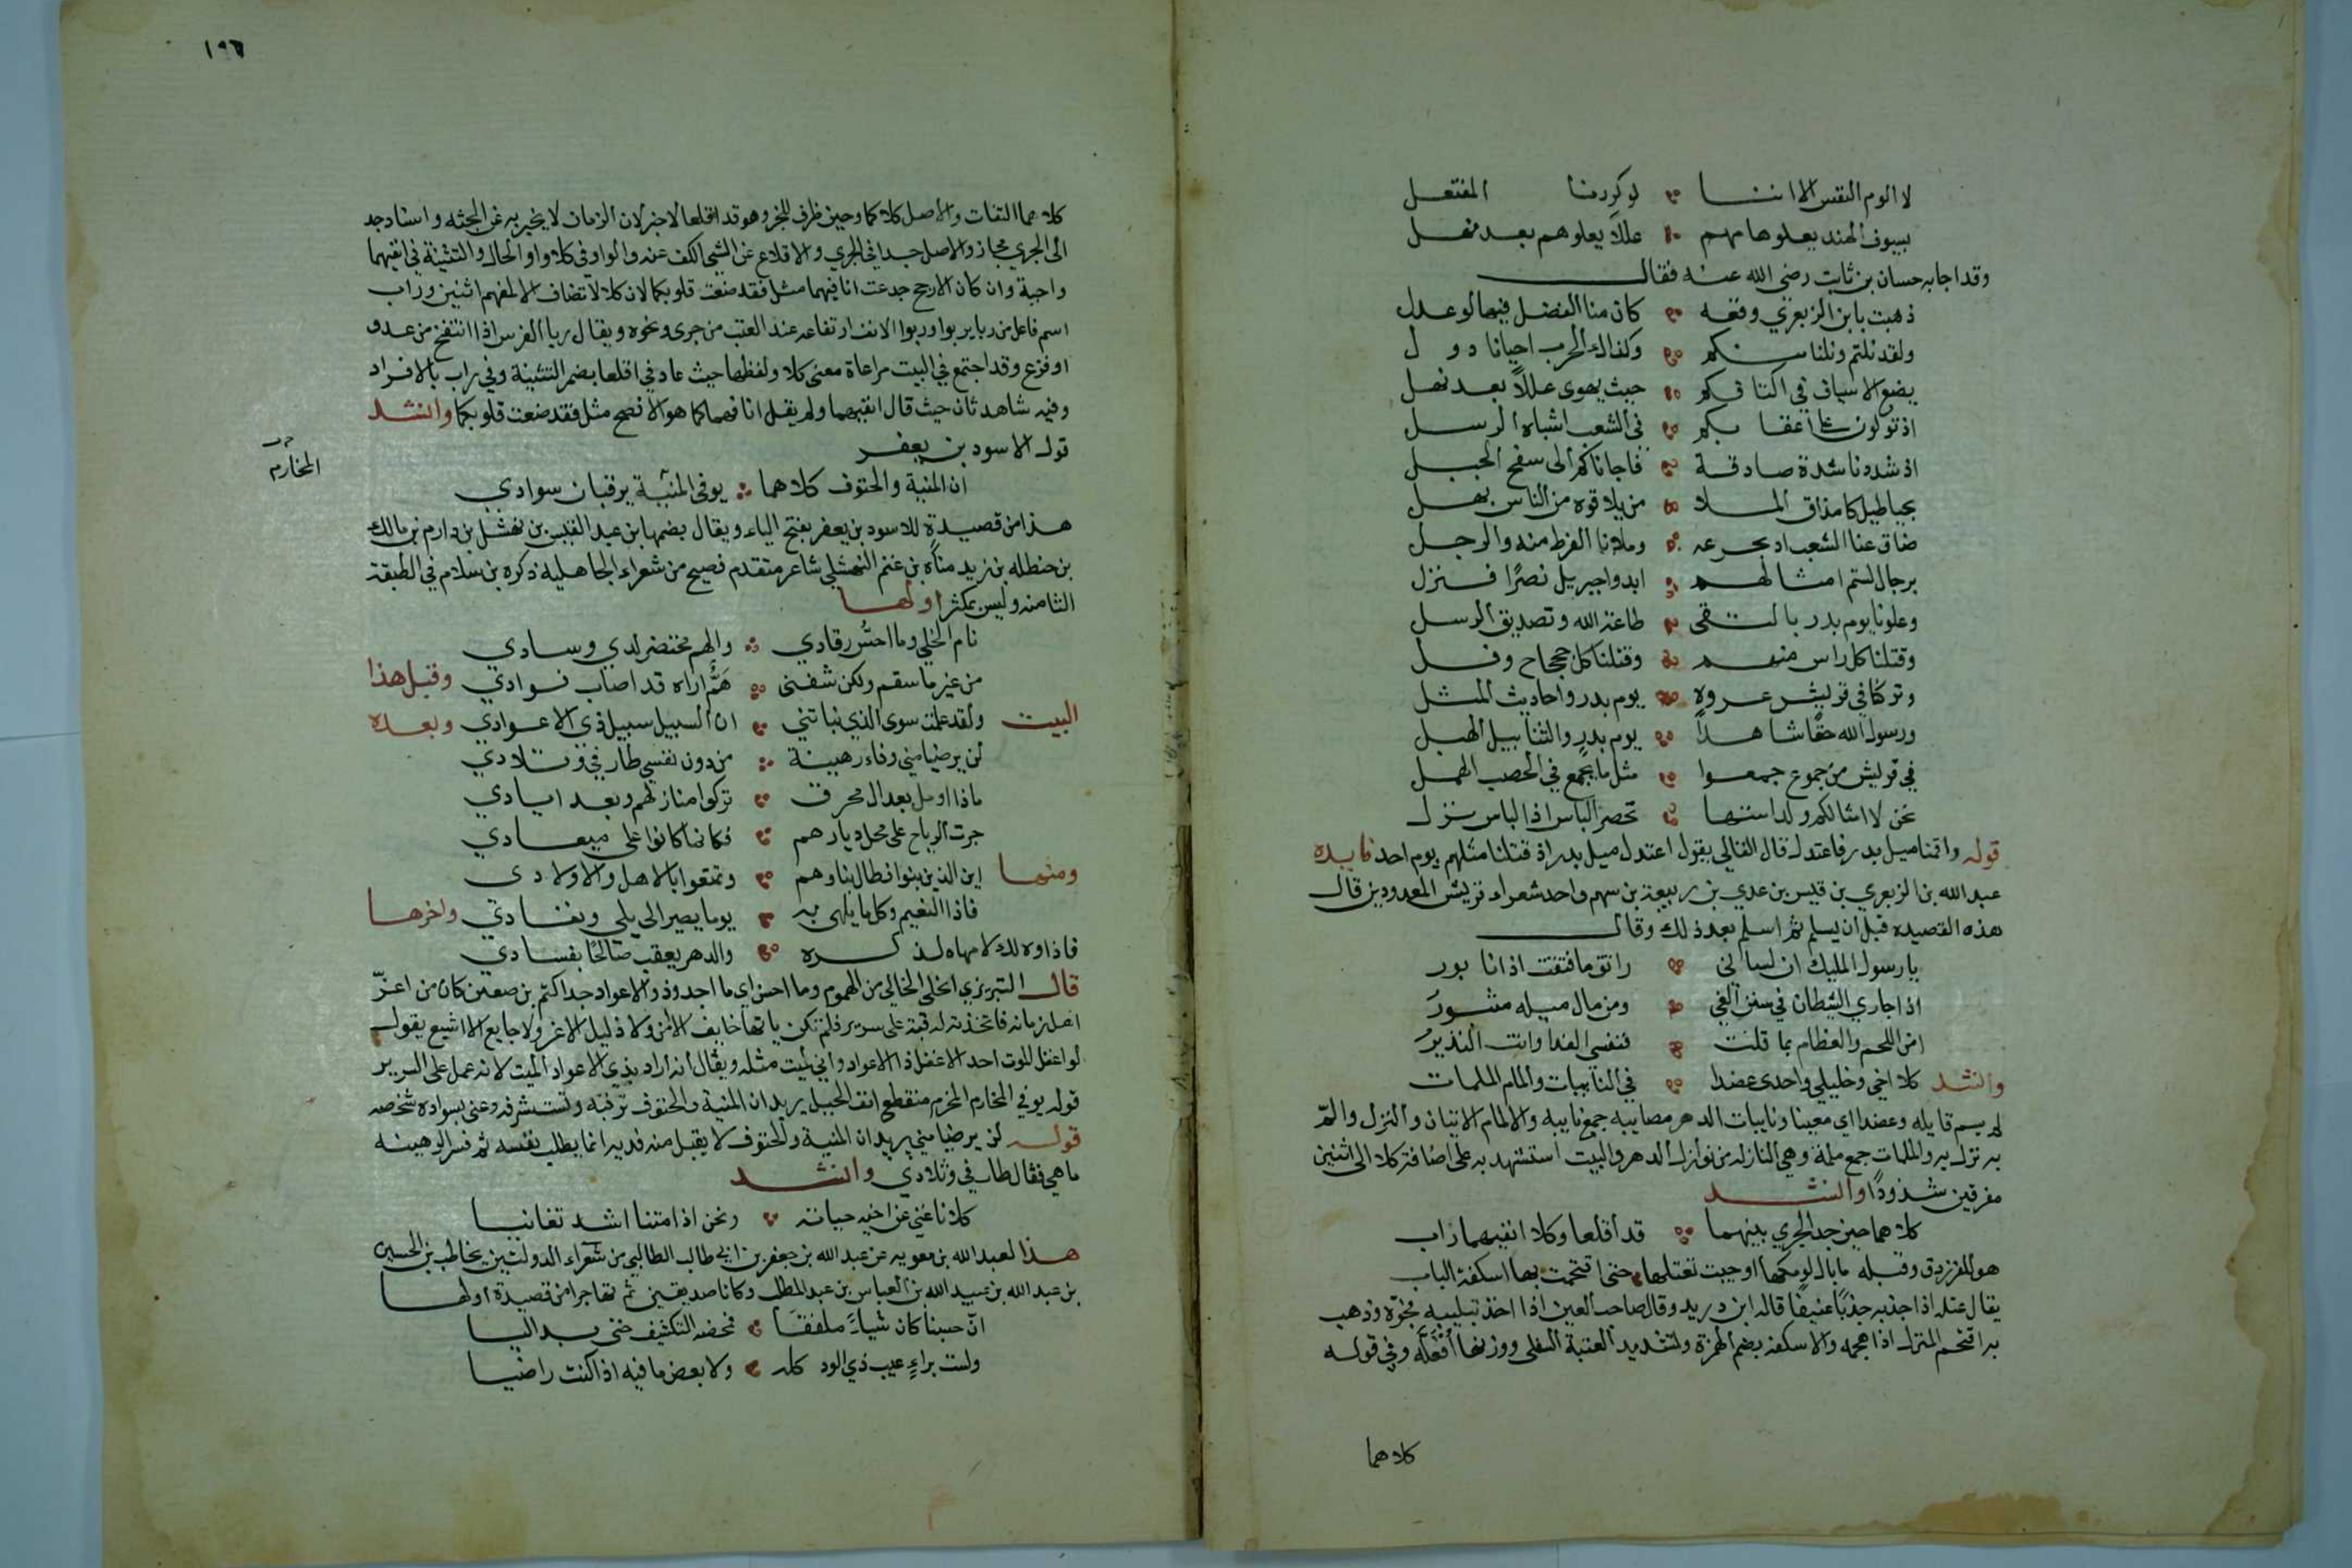 لا الوم النفس الا اننا لو كررنا المفتعل
بسيوف الهند يعلوهامهم عللا يعلوهم بعد نهل
وقد اجابه حسان بن ثابت رضى الله عنه فقال
ذهبت بابن الزبعرى وقعه كان منا الفضل فيها لو عدل
ولقد نلتم ونلنا منكم وكذاك الحرب احيانا دول
يضع الاسياف في اكتافكم حيث يهوى عللاً بعد نهل
اذ تولون على اعقابكم فى الشعب اشباه الرسل
اذ شددنا شدة صادقة فاجاناكم الى سفح الجبل
بخناطيل كامذاق الملا من يلاقوه من الناس يهل
ضاق عنا الشعب اذ نجزعه وملانا الفرط منه والرجل
برجال لستم امثالهم ايدوا جبريل نصرًا فنزل
وعلونا يوم بدر بالتقى طاعة الله وتصديق الرسل
وقتلنا كل راس منهم وقتلنا كل جحجاح رفل
وتركنا في قريش عروة يوم بدر واحاديث المثل
ورسول الله حقًا شاهداً يوم بدر والتنابيل الهبل
في قريش من جموع جمعوا مثل ما يجمع في الخصب الهمل
نحن لا امثالكم ولد استها نحضر الباس اذا الباس نزل
قوله واقمنا ميل بدر فاعتدل قال القالي يقول اعتدل ميل بدر اذ قتلنا مثلهم يوم احد فايده
عبد الله بن الزبعري بن قيس بن عدي بن ربيعة بن سهم واحد شعراء قريش المعدودين قال
هذه القصيده قبل ان يسلم ثم اسلم بعد ذلك وقال
يا رسول المليك ان لساني راتق ما فتقت اذ انا بور
اذ اجاري الشيطان في سنن الغي ومن مال ميله مثبور
امن اللحم والعظام بما قلت فنفسي الفدا وانت النذير
وانشد كلا اخي وخليلي واجدى عضدا في النايبات والمام الملمات
لم يسم قايله وعضدا اي معينا ونايبات الدهر مصايبه جمع نايبه والالمام الاتيان والنزل والمّ
به نزل به والملمات جمع ملمة وهي النازله من نوازل الدهر والبيت استشهد به على اضافة كلا الى اثنين
مفرقين شذوذًا وانشد
كلاهما حين جد الجري بينهما قد اقلعا وكلا انفيهما راب
هو للفرزدق وقبله ما بال لومكها اوجبت تعتلها حتى اقتحمت بها اسكفة الباب
يقال عتله اذا جذبه جذبًا عنيفًا قاله ابن دريد وقال صاحب العين اذا اخذ بتلبيبه فجرّه وذهب
به اقتحم المنزل اذا هجمه والاسكفه بضم الهمزة وتشديد العتبة السفلى ووزنها افعلّه وفي قوله
كلاهما
١٩٦
كلاهما التفات والاصل كلاكما وحين ظرف للخبر وهو قد اقلعا لا خبر لان الزمان لا يخبر به عن الجثه واسناد جد
الى الجري مجاز والاصل جدا في الجري والاقلاع عن الشي الكف عنه والواو في كلا واو الحال والتثنية في انفيهما
واجبة وان كان الارجح جدعت انافيهما مثل فقد صغت قلوبكما لان كلا لا تضاف الا لمفهم اثنين وراب
اسم فاعل من ربا يربوا وربوا الانف ارتفاعه عند التعب من جرى ونحوه ويقال ربا الفرس اذا انتفخ من عدو
او فزع وقد اجتمع في البيت مراعاة معنى كلا ولفظها حيث عاد في اقلعا بضمير التثنية وفي راب بالافراد
وفيه شاهد ثان حيث قال انفيهما ولم يقل انافهما كما هو الافصح مثل فقد صغت قلوبكما وانشد
قول الاسود بن يعفر
المخارم
ان المنية والحتوف كلاهما يوفى المنية يرقبان سوادي
هذا من قصيدة للاسود بن يعفر بفتح الياء ويقال بضمها ابن عبد القيس بن نهشل بن دارم بن مالك
بن حنظله بن زيد مناة بن غنم النهشلي شاعر متقدم فصيح من شعراء الجاهليه ذكره بن سلام في الطبقة
الثامنه وليس بمكثر اولها
نام الخلي وما احسّ رقادي والهم محتضر لدي وسادي
من غير ما سقم ولكن شفنى همّ اراه قد اصاب فوادي وقبل هذا
البيت ولقد علمت سوى الذي نباتني ان السبيل سبيل ذي الاعوادي وبعده
لن يرضيا مني وفاء رهينة من دون نفسي طارفي وتلادي
ماذا اومل بعد ال محرق تركوا منازلهم وبعد ايادي
جرت الرياح على محل ديارهم فكانما كانوا على ميعادي
ومنها اين الذين بنوا فطال بناوهم وتمتعوا بالاهل والاولادي
فاذا النعيم وكل ما يلهى به يوما يصير الى بلي ونفادي واخرها
فاذا وذلك لا مهاه لذكره والدهر يعقب صالحًا بفسادي
قال التبريزي الخلي الخالي من الهموم وما احس اي ما اجد وذو الاعواد جد اكثم بن صيفى كان من اعزّ
اهل زمانه فاتخذت له قبة على سرير فلم تكن ياتها خايف الا من ولا ذليل الا عز ولا جايع الا اشبع يقول
لو اغفل الموت احد الاغفل ذا الاعواد واني لميت مثله ويقال انه اراد بذي الاعواد الميت لانه عمل على السرير
قوله يوفي المخارم المخرم منقطع انف الجبل يريد ان المنية والحتوف ترقبه وتستشرفه وعنى بسواده شخصه
قوله لن يرضيا مني يريد ان المنية والحتوف لا يقبل منه فديه انما يطلب نفسه ثم فسر الرهينه
ما هي فقال طارفي وتلادي وانشد
كلانا غني عن اخيه حياته ونحن اذا متنا اشد تغانيا
هذا لعبد الله بن معويه عن عبد الله بن جعفر بن ابي طالب الطالبي من شعراء الدولتين يخاطب بن الحسين
بن عبد الله بن عبيد الله بن العباس بن عبد المطلب وكانا صديقين ثم تهاجرا من قصيدة اولها
انّ حسينا كان شياً ملففًا فمحضه التكشيف حتى بدا ليا
ولست براءٍ عيب ذي الود كله ولا بعض ما فيه اذا كنت راضيا